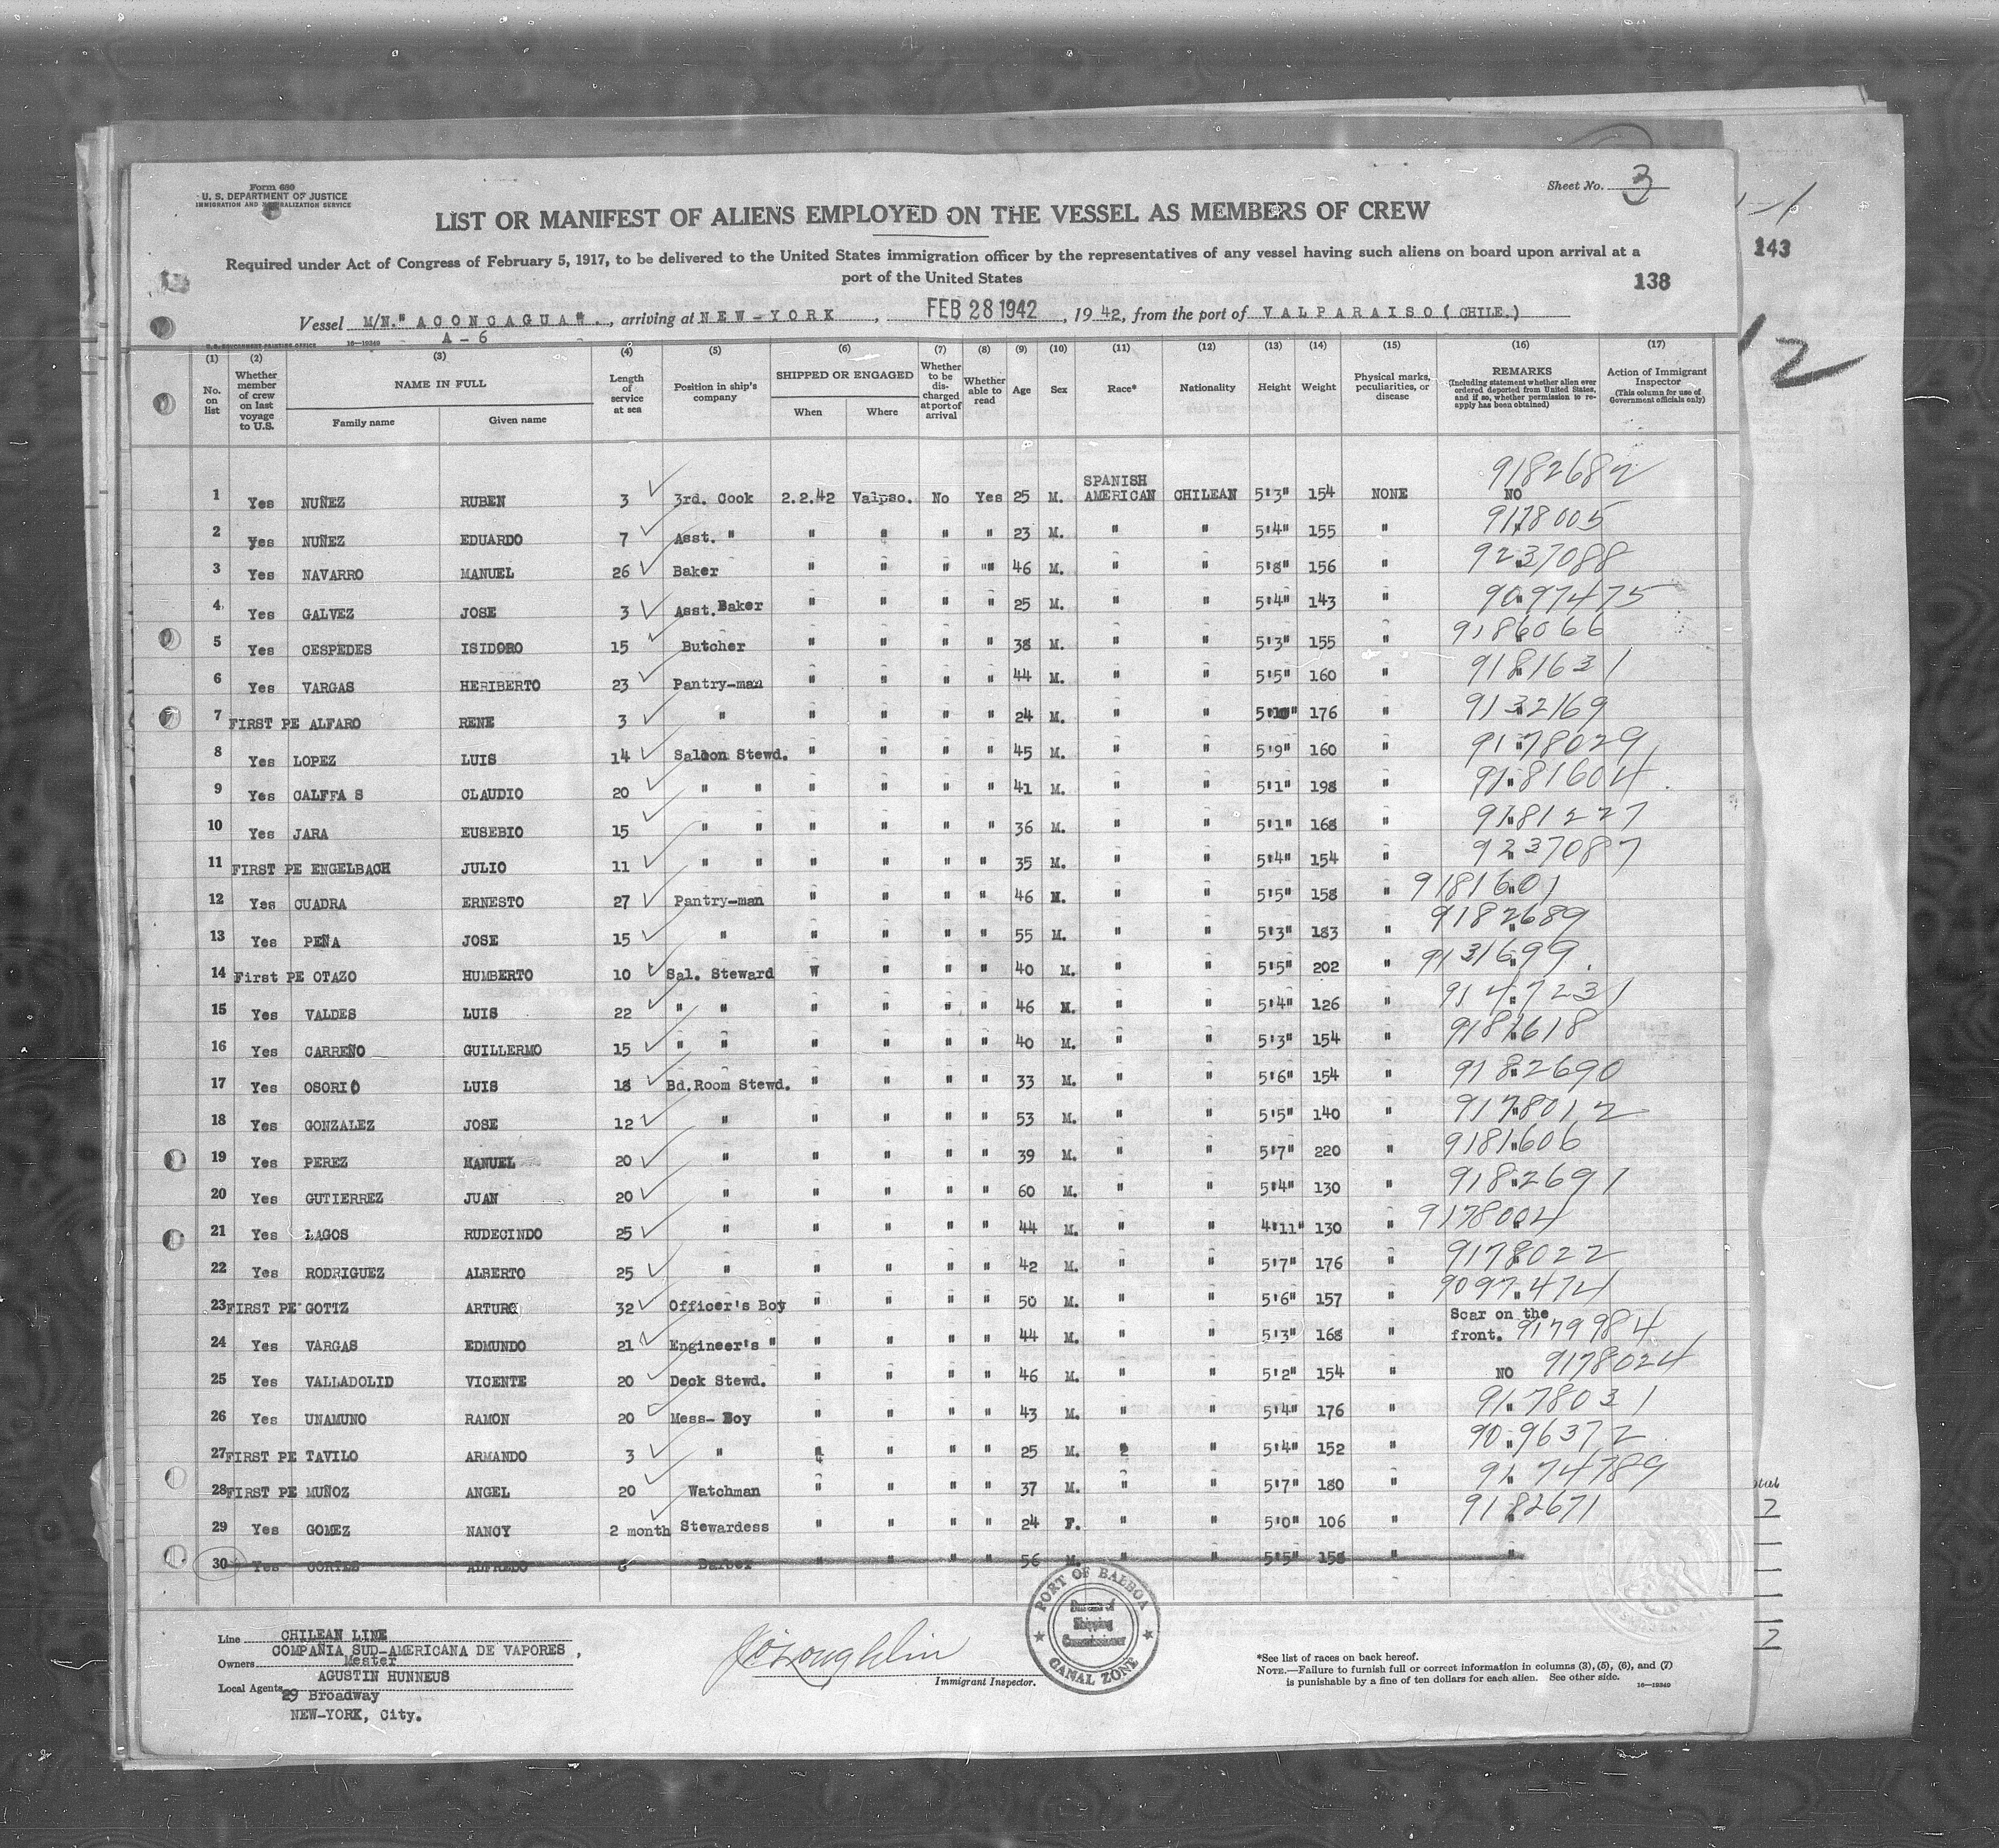 Form 680
U. S. DEPARTMENT OF JUSTICE
IMMIGRATION AND NATURALIZATION SERVICE
Sheet No. 3
LIST OR MANIFEST OF ALIENS EMPLOYED ON THE VESSEL AS MEMBERS OF CREW
Required under Act of Congress of February 5, 1917, to be delivered to the United States immigration officer by the representatives of any vessel having such aliens on board upon arrival at a
port of the United States
138
143
Vessel M/N." ACONCAGUA"., arriving at NEW-YORK, FEB 28 1942, 19 42, from the port of VALPARAISO (CHILE.)
U. S. GOVERNMENT PRINTING OFFICE 16—19349 A - 6
12
(1) (2) (3) (4) (5) (6) (7) (8) (9) (10) (11) (12) (13) (14) (15) (16) (17)
No. on list
Whether member of crew on last voyage to U.S.
NAME IN FULL
Family name
Given name
Length of service at sea
Position in ship's company
SHIPPED OR ENGAGED
When
Where
Whether to be discharged at port of arrival
Whether able to read
Age
Sex
Race*
Nationality
Height
Weight
Physical marks, peculiarities, or disease
REMARKS
(Including statement whether alien ever ordered deported from United States, and if so, whether permission to reapply has been obtained)
Action of Immigrant Inspector
(This column for use of Government officials only)
1 Yes NUÑEZ RUBEN 3 3rd. Cook 2.2.42 Valpso. No Yes 25 M. SPANISH AMERICAN CHILEAN 5'3" 154 NONE NO 9182682
2 yes NUÑEZ EDUARDO 7 Asst. " " " " " 23 M. " " 5'4" 155 " 9178005
3 Yes NAVARRO MANUEL 26 Baker " " " "" 46 M. " " 5'8" 156 " " 9237088
4 Yes GALVEZ JOSE 3 Asst. Baker " " " " 25 M. " " 5'4" 143 " " 9097475
5 Yes CESPEDES ISIDORO 15 Butcher " " " " 38 M. " " 5'3" 155 " " 9186066
6 Yes VARGAS HERIBERTO 23 Pantry-man " " " " 44 M. " " 5'5" 160 " " 9181631
7 FIRST PE ALFARO RENE 3 " " " " " 24 M. " " 176 " " 9132169
8 Yes LOPEZ LUIS 14 Saloon Stewd. " " " " 45 M. " " 5'9" 160 " " 9178029
9 Yes CALFFA S CLAUDIO 20 " " " " " " 41 M. " " 5'1" 198 " " 9181604
10 Yes JARA EUSEBIO 15 " " " " " " 36 M. " " 5'1" 168 " " 9181227
11 FIRST PE ENGELBACH JULIO 11 " " " " " " 35 M. " " 5'4" 154 " " 9237087
12 Yes CUADRA ERNESTO 27 Pantry-man " " " " 46 M. " " 5'5" 158 " " 9181601
13 Yes PEÑA JOSE 15 " " " " " 55 M. " " 5'3" 183 " " 9182689
14 First PE OTAZO HUMBERTO 10 Sal. Steward W " " " 40 M. " " 5'5" 202 " " 9131699
15 Yes VALDES LUIS 22 " " " " " " 46 M. " " 5'4" 126 " " 9147231
16 Yes CARREÑO GUILLERMO 15 " " " " " " 40 M. " " 5'3" 154 " " 9181618
17 Yes OSORIO LUIS 18 Bd.Room Stewd. " " " " 33 M. " " 5'6" 154 " " 9182690
18 Yes GONZALEZ JOSE 12 " " " " " 53 M. " " 5'5" 140 " " 9178012
19 Yes PEREZ MANUEL 20 " " " " " 39 M. " " 5'7" 220 " " 9181606
20 Yes GUTIERREZ JUAN 20 " " " " " 60 M. " " 5'4" 130 " " 9182691
21 Yes LAGOS RUDECINDO 25 " " " " " 44 M. " " 4'11" 130 " " 9178004
22 Yes RODRIGUEZ ALBERTO 25 " " " " " 42 M. " " 5'7" 176 " " 9178022
23 FIRST PE GOTIZ ARTURO 32 Officer's Boy " " " " 50 M. " " 5'6" 157 " " 9097474
24 Yes VARGAS EDMUNDO 21 Engineer's " " " " " 44 M. " " 5'3" 168 " Scar on the front. 9179984
25 Yes VALLADOLID VICENTE 20 Deck Stewd. " " " " 46 M. " " 5'2" 154 " NO 9178024
26 Yes UNAMUNO RAMON 20 Mess- Boy " " " " 43 M. " " 5'4" 176 " " 9178031
27 FIRST PE TAVILO ARMANDO 3 " " " " 25 M. " 5'4" 152 " " 9096372
28 FIRST PE MUÑOZ ANGEL 20 Watchman " " " " 37 M. " " 5'7" 180 " " 9174789
29 Yes GOMEZ NANCY 2 month Stewardess " " " " 24 F. " " 5'0" 106 " 9182671
30 Yes CORTES ALFREDO 8 Barber " " " " 56 M. " " 5'5" 158 " "
Line CHILEAN LINE
Owners COMPAÑIA SUD-AMERICANA DE VAPORES,
Mester
AGUSTIN HUNNEUS
Local Agents 29 Broadway
NEW-YORK, City.
J C Loughlin
Immigrant Inspector.
PORT OF BALBOA
Bureau of Shipping Commissioner
CANAL ZONE
*See list of races on back hereof.
NOTE.—Failure to furnish full or correct information in columns (3), (5), (6), and (7)
is punishable by a fine of ten dollars for each alien. See other side.
16—19349